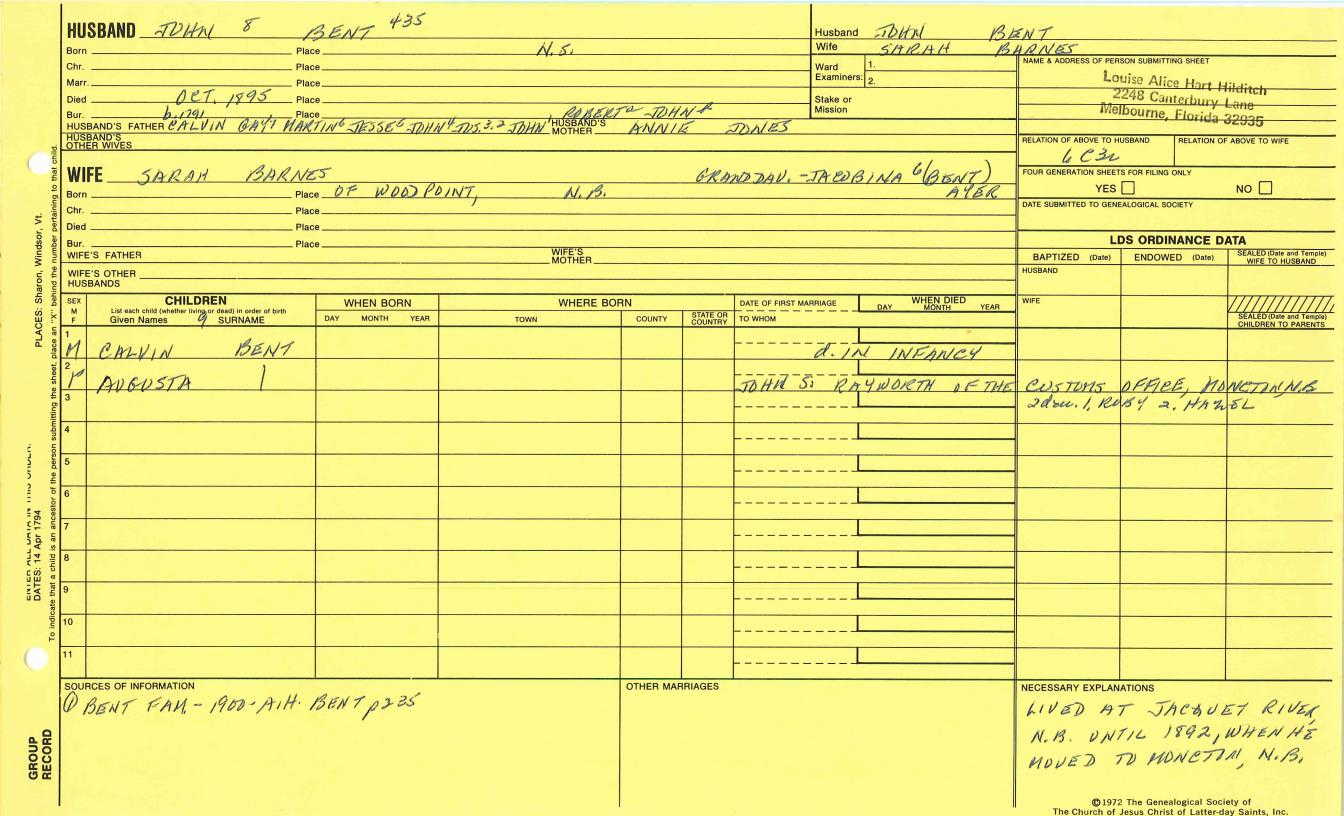 HUSBAND JOHN 8 BENT 435
Born Place N.S.
Chr. Place
Marr. Place
Died OCT. 1895 Place
Bur. Place
b. 1791 ROBERT a JOHN A
HUSBAND'S FATHER CALVIN GAY 7 MARTIN 6 JESSE 5 JOHN 4 JOS. 3, 2 JOHN 1 HUSBAND'S MOTHER ANNIE JONES
HUSBAND'S OTHER WIVES
Husband JOHN BENT
Wife SARAH BARNES
Ward Examiners: 1.
2.
Stake or Mission
NAME & ADDRESS OF PERSON SUBMITTING SHEET
Louise Alice Hart Hilditch
2248 Canterbury Lane
Melbourne, Florida 32935
RELATION OF ABOVE TO HUSBAND RELATION OF ABOVE TO WIFE
6 C3r
FOUR GENERATION SHEETS FOR FILING ONLY
YES NO
DATE SUBMITTED TO GENEALOGICAL SOCIETY
WIFE SARAH BARNES GRANDDAU. - JACOBINA 6 (BENT) AYER
Born Place OF WOOD POINT, N.B.
Chr. Place
Died Place
Bur. Place
WIFE'S FATHER WIFE'S MOTHER
WIFE'S OTHER HUSBANDS
LDS ORDINANCE DATA
BAPTIZED (Date) ENDOWED (Date) SEALED (Date and Temple) WIFE TO HUSBAND
HUSBAND
WIFE
SEALED (Date and Temple) CHILDREN TO PARENTS
SEX M F CHILDREN WHEN BORN WHERE BORN DATE OF FIRST MARRIAGE WHEN DIED
List each child (whether living or dead) in order of birth
Given Names 9 SURNAME DAY MONTH YEAR TOWN COUNTY STATE OR COUNTRY TO WHOM DAY MONTH YEAR
1
M CALVIN BENT d. IN INFANCY
2
F AUGUSTA | JOHN S. RAYWORTH OF THE CUSTOMS OFFICE, MONCTON, N.B
3 2 dau. 1, RUBY 2. HAZEL
4
5
6
7
8
9
10
11
SOURCES OF INFORMATION
① BENT FAM. - 1900 - A.H. BENT p235
OTHER MARRIAGES
NECESSARY EXPLANATIONS
LIVED AT JACQUET RIVER,
N.B. UNTIL 1892, WHEN HE
MOVED TO MONCTON, N.B.
©1972 The Genealogical Society of
The Church of Jesus Christ of Latter-day Saints, Inc.
PLACES: Sharon, Windsor, Vt.
ENTER ALL DATA IN THIS ORDER:
DATES: 14 Apr 1794
To indicate that a child is an ancestor of the person submitting the sheet, place an "X" behind the number pertaining to that child.
GROUP RECORD